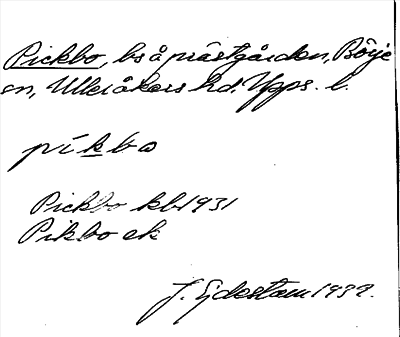 Pickbo, bs å prästgården, Börje
sn, Ulleråkers hd. Upps. l.
píkbo
Pickbo kb 1931
Pikbo ek
J. Ejdestam 1932.